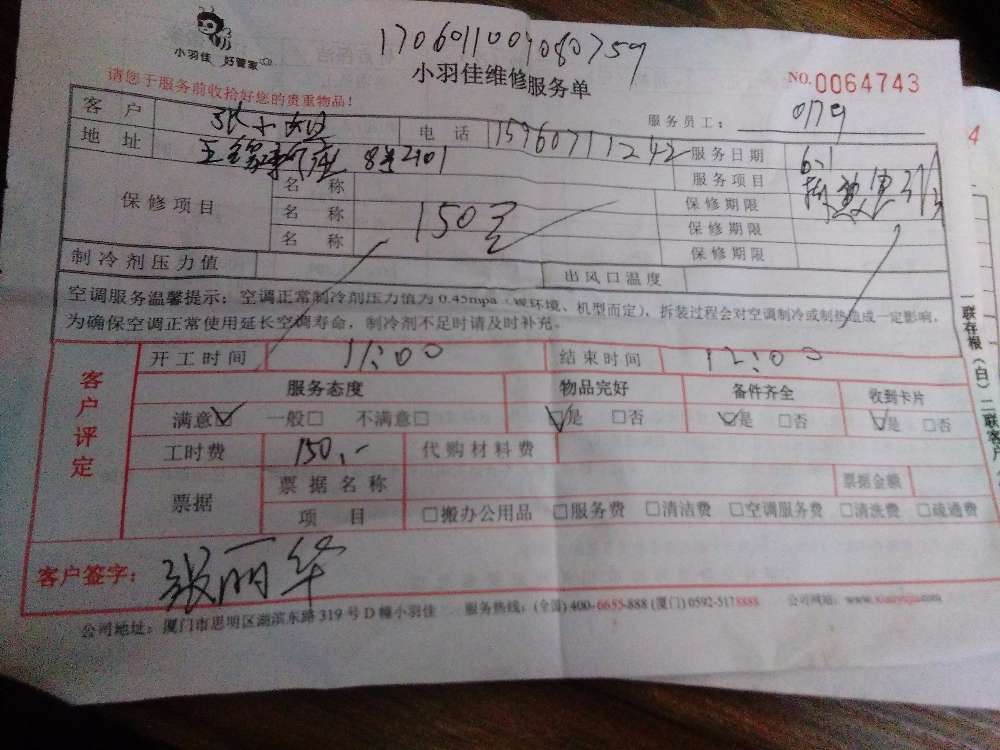 1706011009080759
小羽佳 好管家
小羽佳维修服务单
NO.0064743
请您于服务前收拾好您的贵重物品!
服务员工: 0179
客户 张小姐 电话 15960711242 服务日期 6.1
地址 8#2101 服务项目
保修项目 名称 150元 保修期限
名称 保修期限
名称 保修期限
制冷剂压力值 出风口温度
空调服务温馨提示: 空调正常制冷剂压力值为0.45mpa(视环境、机型而定), 拆装过程会对空调制冷或制热造成一定影响,
为确保空调正常使用延长空调寿命, 制冷剂不足时请及时补充。
客户评定
开工时间 11:00 结束时间 12:00
服务态度 物品完好 备件齐全 收到卡片
满意☑ 一般□ 不满意□ ☑是 □否 ☑是 □否 ☑是 □否
工时费 150.- 代购材料费
票据 票据名称 票据金额
项目 □搬办公用品 □服务费 □清洁费 □空调服务费 □清洗费 □疏通费
客户签字: 张丽华
公司地址: 厦门市思明区湖滨东路319号D幢小羽佳 服务热线: (全国) 400-6655-888 (厦门) 0592-5178888 公司网站: www.xiaoyujia.com
一联存根(白) 二联客户
4